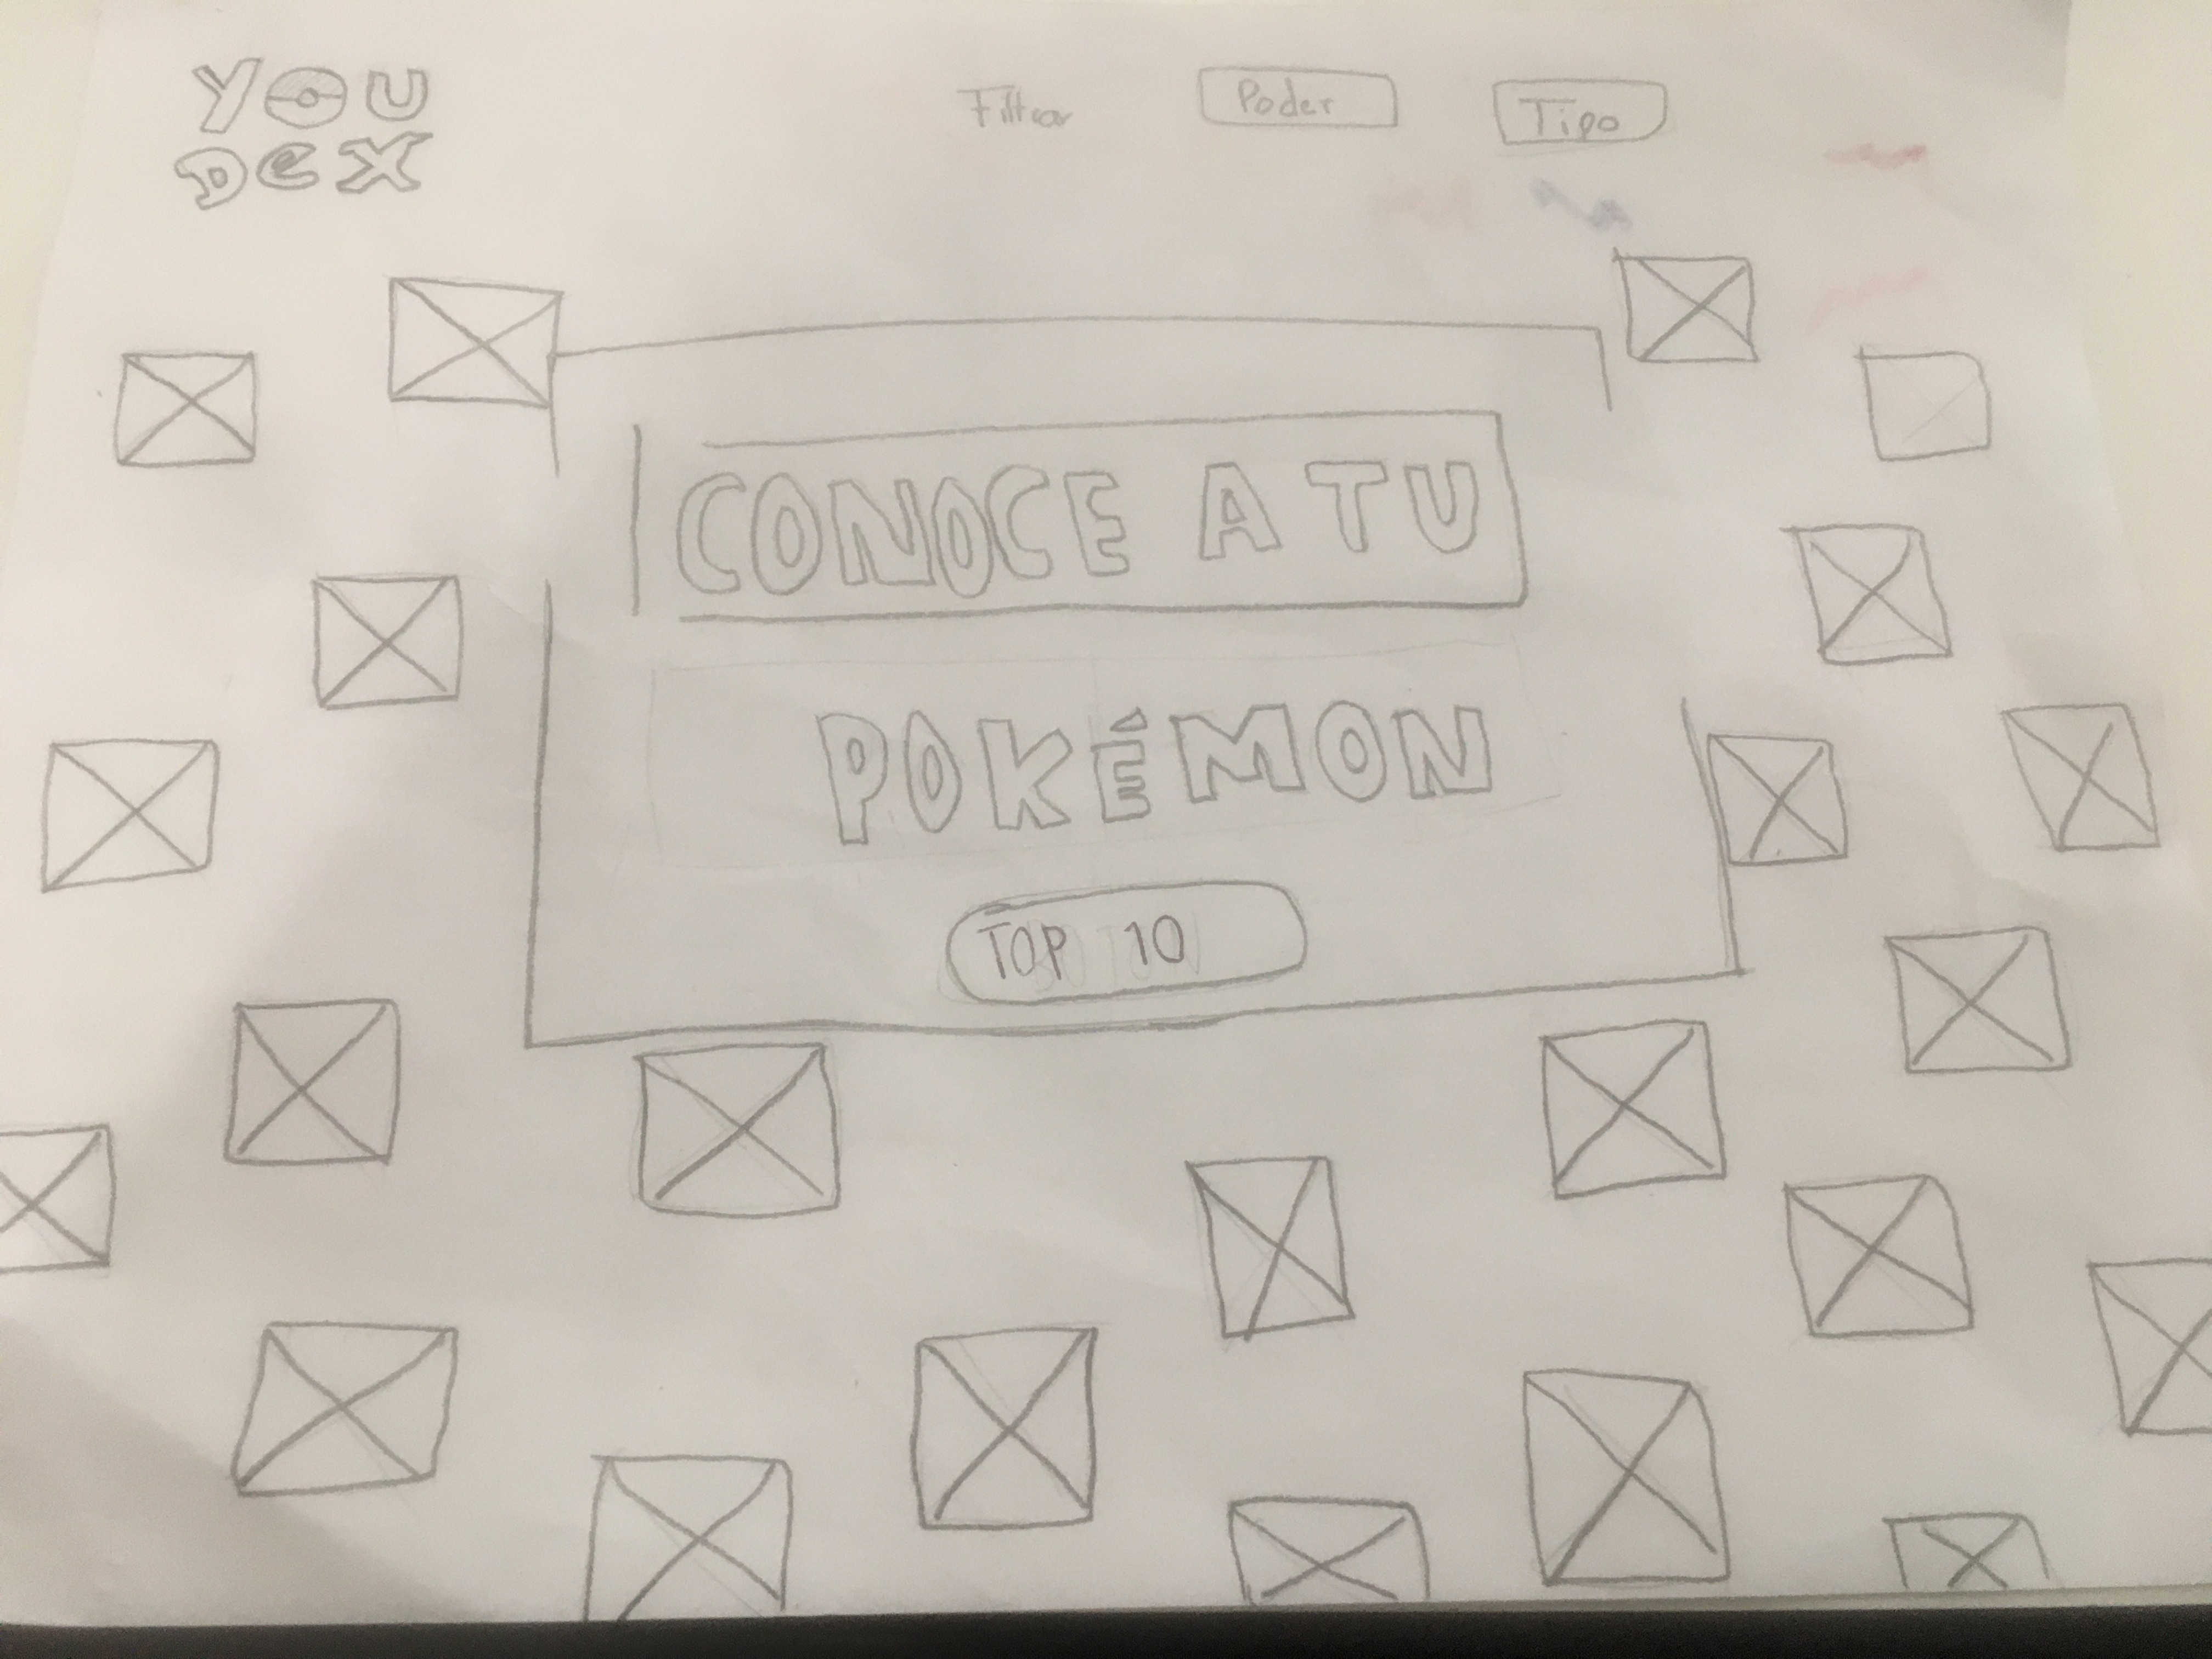 YOU
Dex
Filtrar
Poder
Tipo
CONOCE A TU
POKÉMON
TOP 10